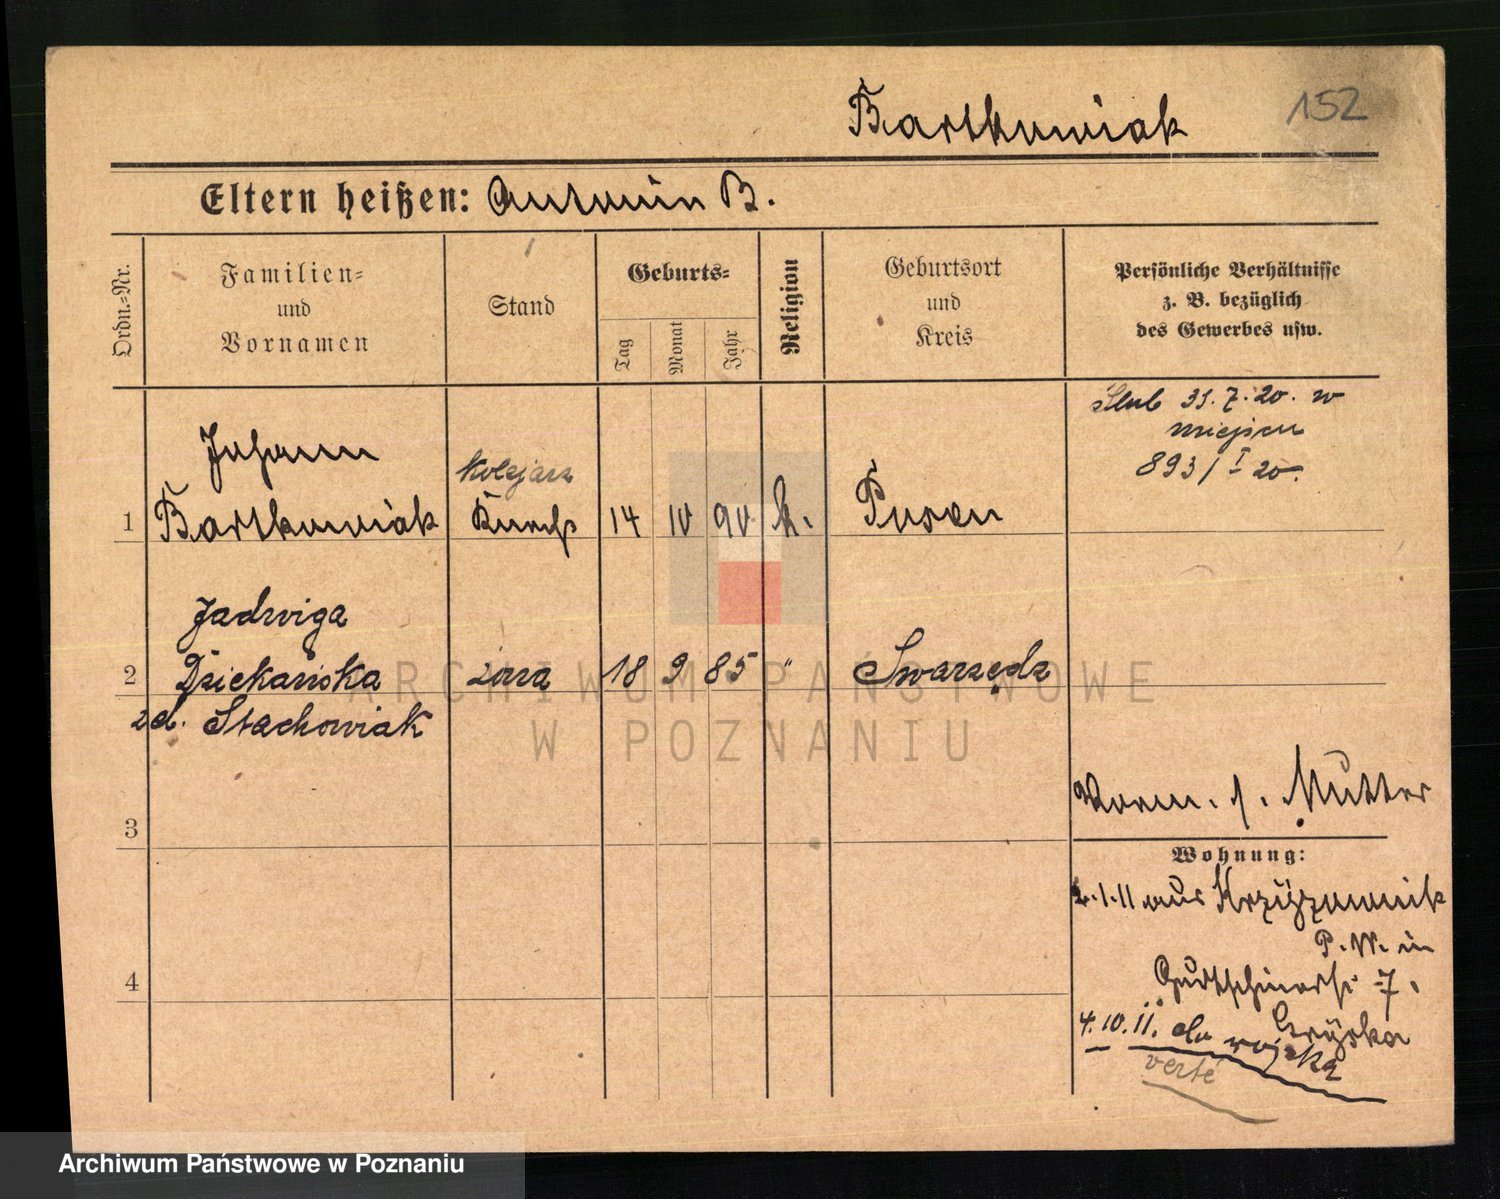 Bartkowiak
152
Eltern heißen: Antonin B.
Ordn.=Nr.
Familien= und Vornamen
Stand
Geburts=
Tag
Monat
Jahr
Religion
Geburtsort und Kreis
Persönliche Verhältnisse
z. B. bezüglich
des Gewerbes usw.
Ślub 31.7.20. w
miejscu
893/I 20.
Johann
kolejarz
1 Bartkowiak Knecht 14 10 90 k. Posen
Jadwiga
2 Dziekańska żona 18 9 85 " Swarzędz
zd. Stachowiak
ARCHIWUM PAŃSTWOWE
W POZNANIU
Vorm. s. Mutter
3
Wohnung:
2.1.11 aus Krzyżownik
P. W. in
Gurtschinerstr. 7.
4
4.10.11. do wojska
verte
Archiwum Państwowe w Poznaniu